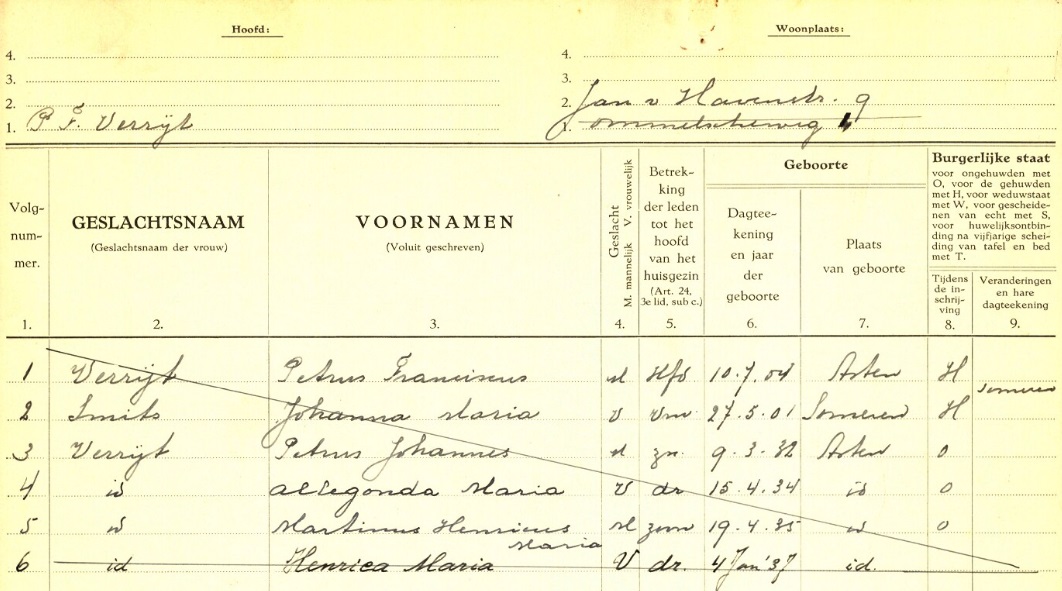 Hoofd: Woonplaats:
4. 4.
3. 3.
2. 2. Jan v Havenstr. 9
1. P. F. Verrijt 1. Ommelscheweg 4
Volg-
num-
mer.
1.
GESLACHTSNAAM
(Geslachtsnaam der vrouw)
2.
VOORNAMEN
(Voluit geschreven)
3.
Geslacht
M. mannelijk V. vrouwelijk
4.
Betrek-
king
der leden
tot het
hoofd
van het
huisgezin
(Art. 24,
3e lid, sub c.)
5.
Geboorte
Dagtee-
kening
en jaar
der
geboorte
6.
Plaats
van geboorte
7.
Burgerlijke staat
voor ongehuwden met
O, voor de gehuwden
met H, voor weduwstaat
met W, voor gescheide-
nen van echt met S,
voor huwelijksontbin-
ding na vijfjarige schei-
ding van tafel en bed
met T.
Tijdens
de in-
schrij-
ving
8.
Veranderingen
en hare
dagteekening
9.
1 Verrijt Petrus Franciscus M Hfd 10.7.04 Asten H
Someren
2 Smits Johanna Maria V Vrw 27.5.01 Someren H
3 Verrijt Petrus Johannes M zn. 9.3.32 Asten O
4 id Allegonda Maria V dr 15.4.34 id O
5 id Martinus Henricus M zoon 19.4.35 id O
Maria
6 id Henrica Maria V dr. 4 Jan '37 id.